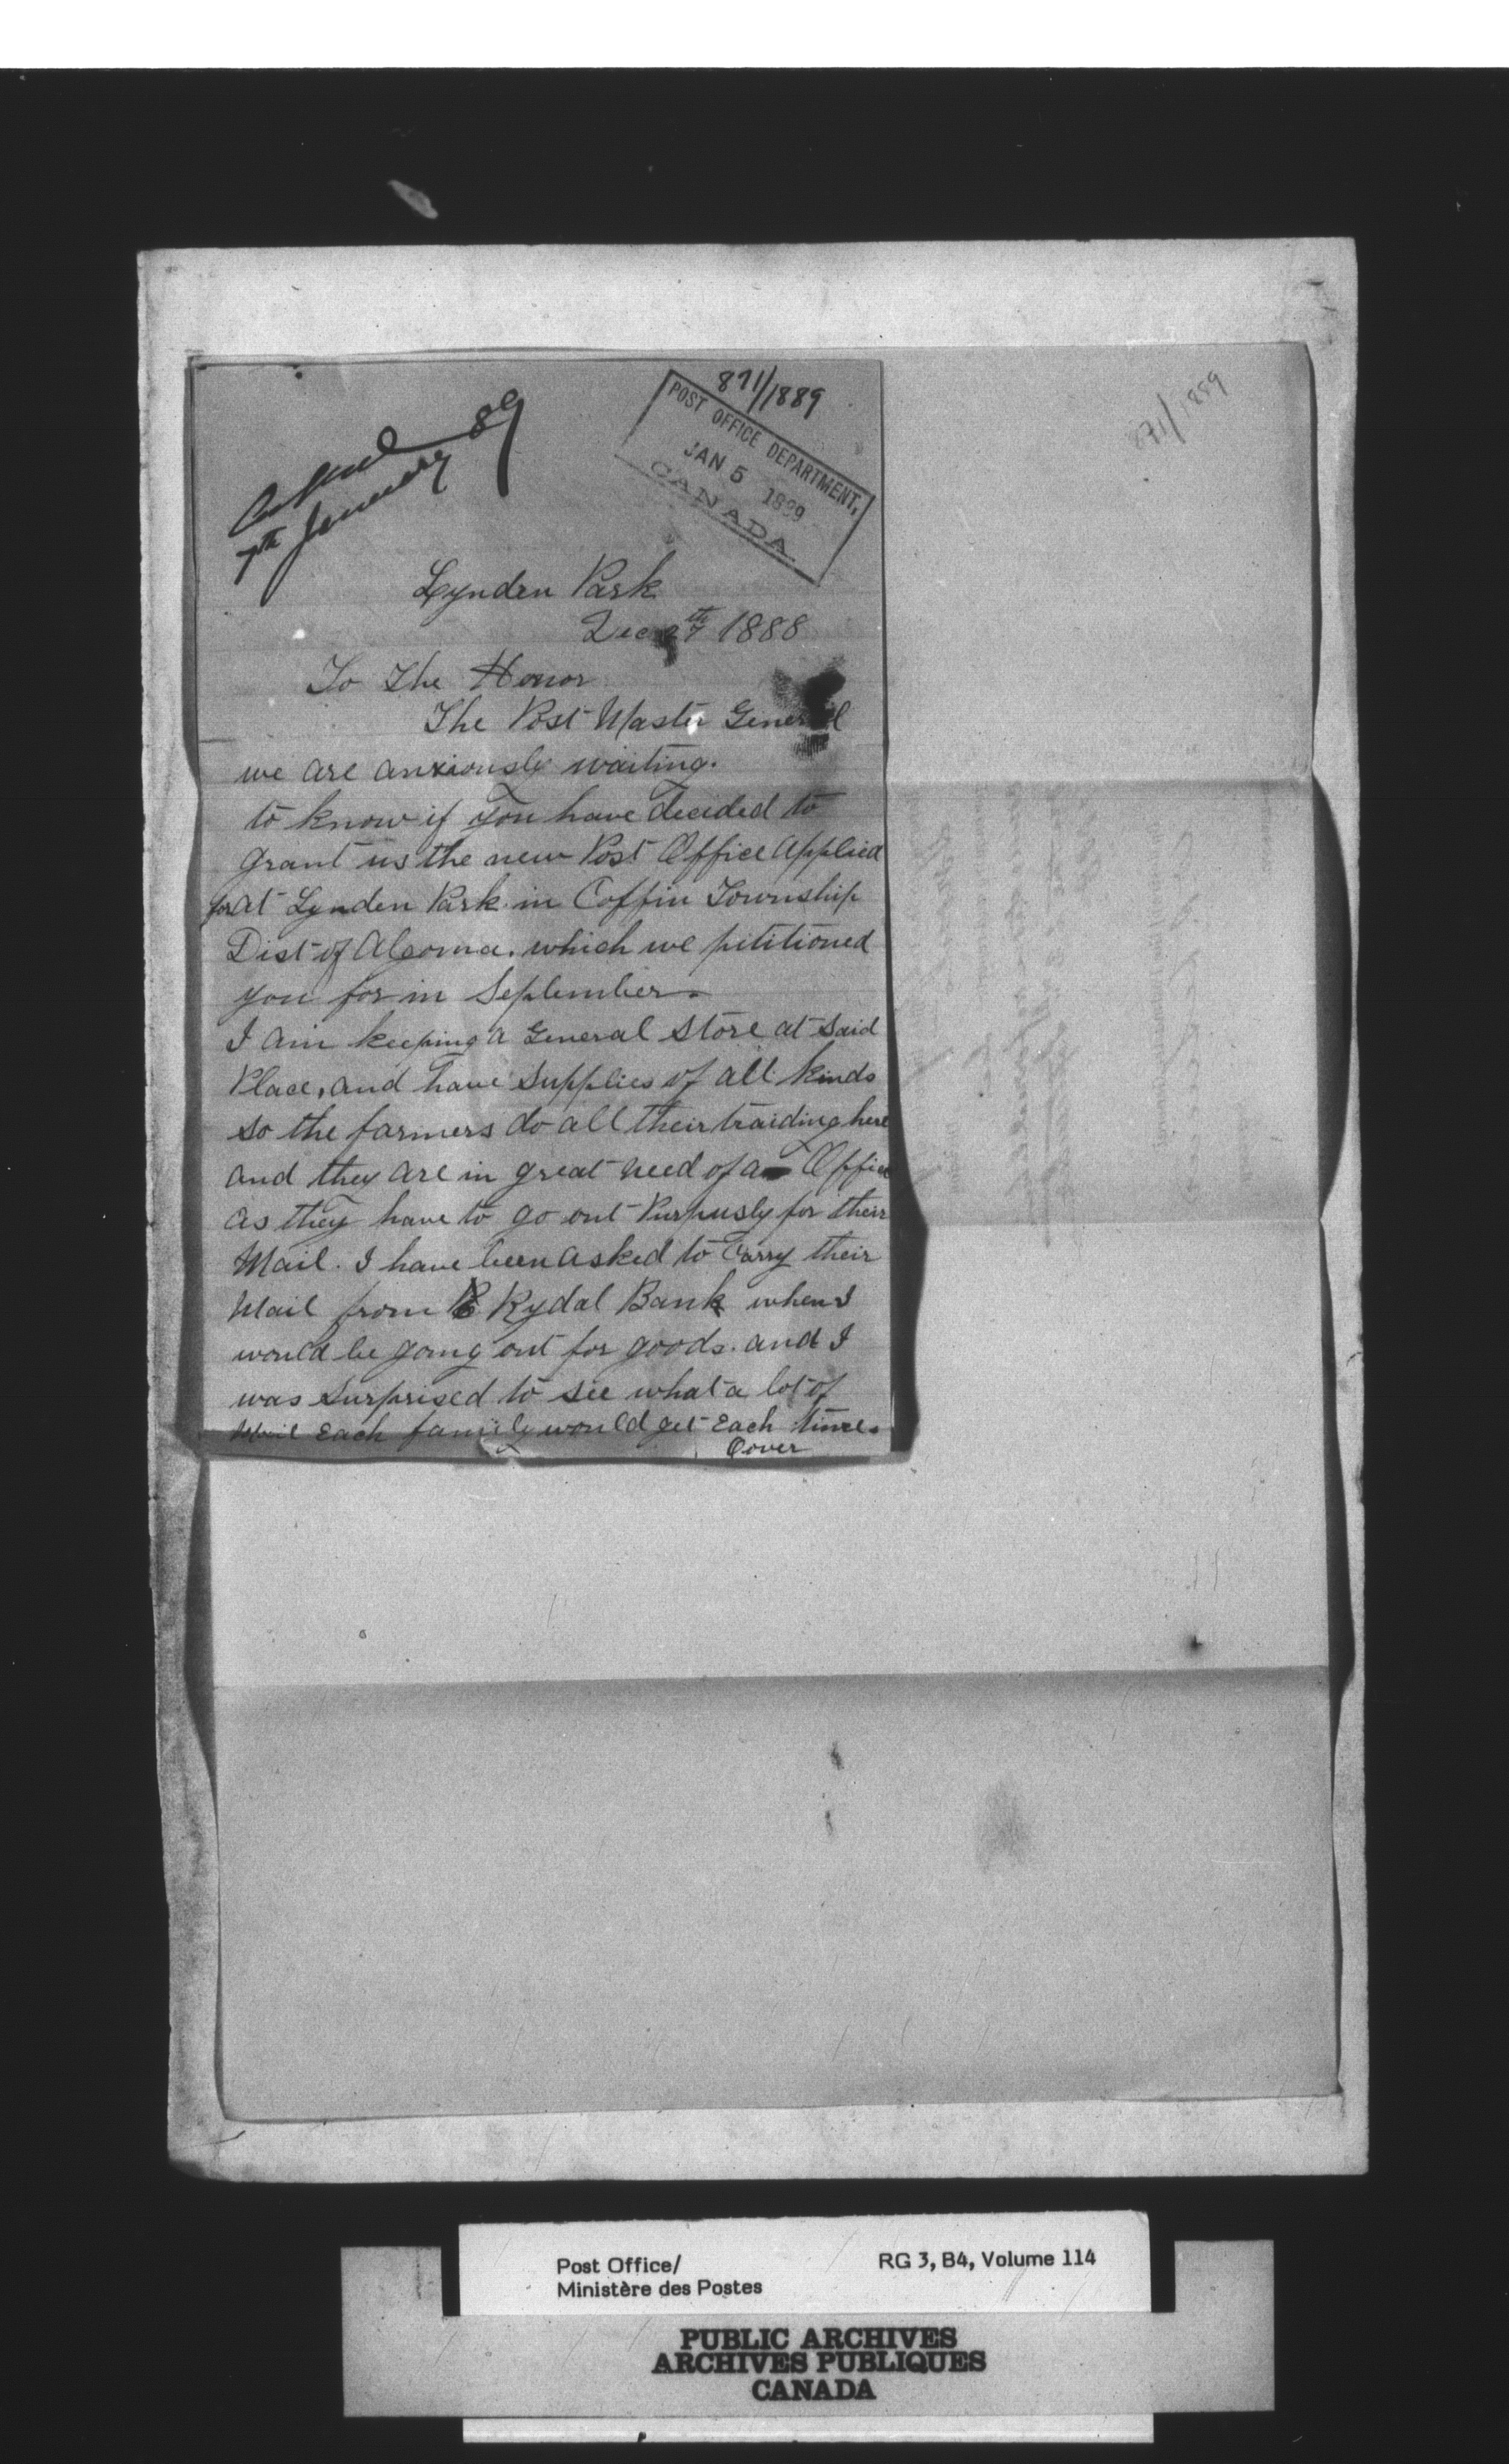 871/1889
POST OFFICE DEPARTMENT,
JAN 5 1889
CANADA
89
7th January
Lynden Park
Dec 27th 1888
To The Honor
The Post Master General
we are anxiously waiting.
to know if you have decided to
grant us the new Post Office Applied
for at Lynden Park in Coffin Township
Dist of Algoma. which we pititioned
you for in September.
I am keeping a General Store at Said
Place, and have Supplies of all kinds
so the farmers do all their traiding here
and they are in great need of a Office
as they have to go out Purpusly for their
Mail. I have been asked to Carry their
Mail from Rydal Bank when I
would be going out for goods. and I
was Surprised to see what a lot of
Mail Each family would get Each time.
Oover
871/1889
Post Office/
Ministère des Postes
RG 3, B4, Volume 114
PUBLIC ARCHIVES
ARCHIVES PUBLIQUES
CANADA